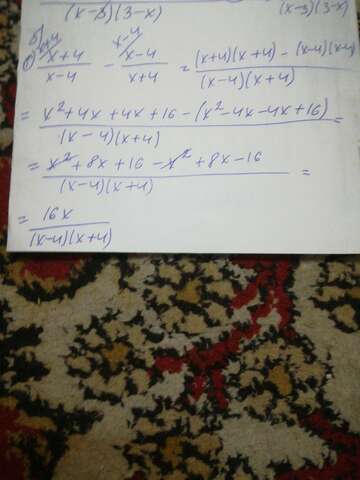 (x-3)(3-x) (x-3)(3-x)
б)
x+4 x-4
x+4/x-4 - x-4/x+4 = (x+4)(x+4)-(x-4)(x-4)/(x-4)(x+4)
= x²+4x+4x+16-(x²-4x-4x+16)/(x-4)(x+4) =
= x²+8x+16-x²+8x-16/(x-4)(x+4) =
= 16x/(x-4)(x+4)